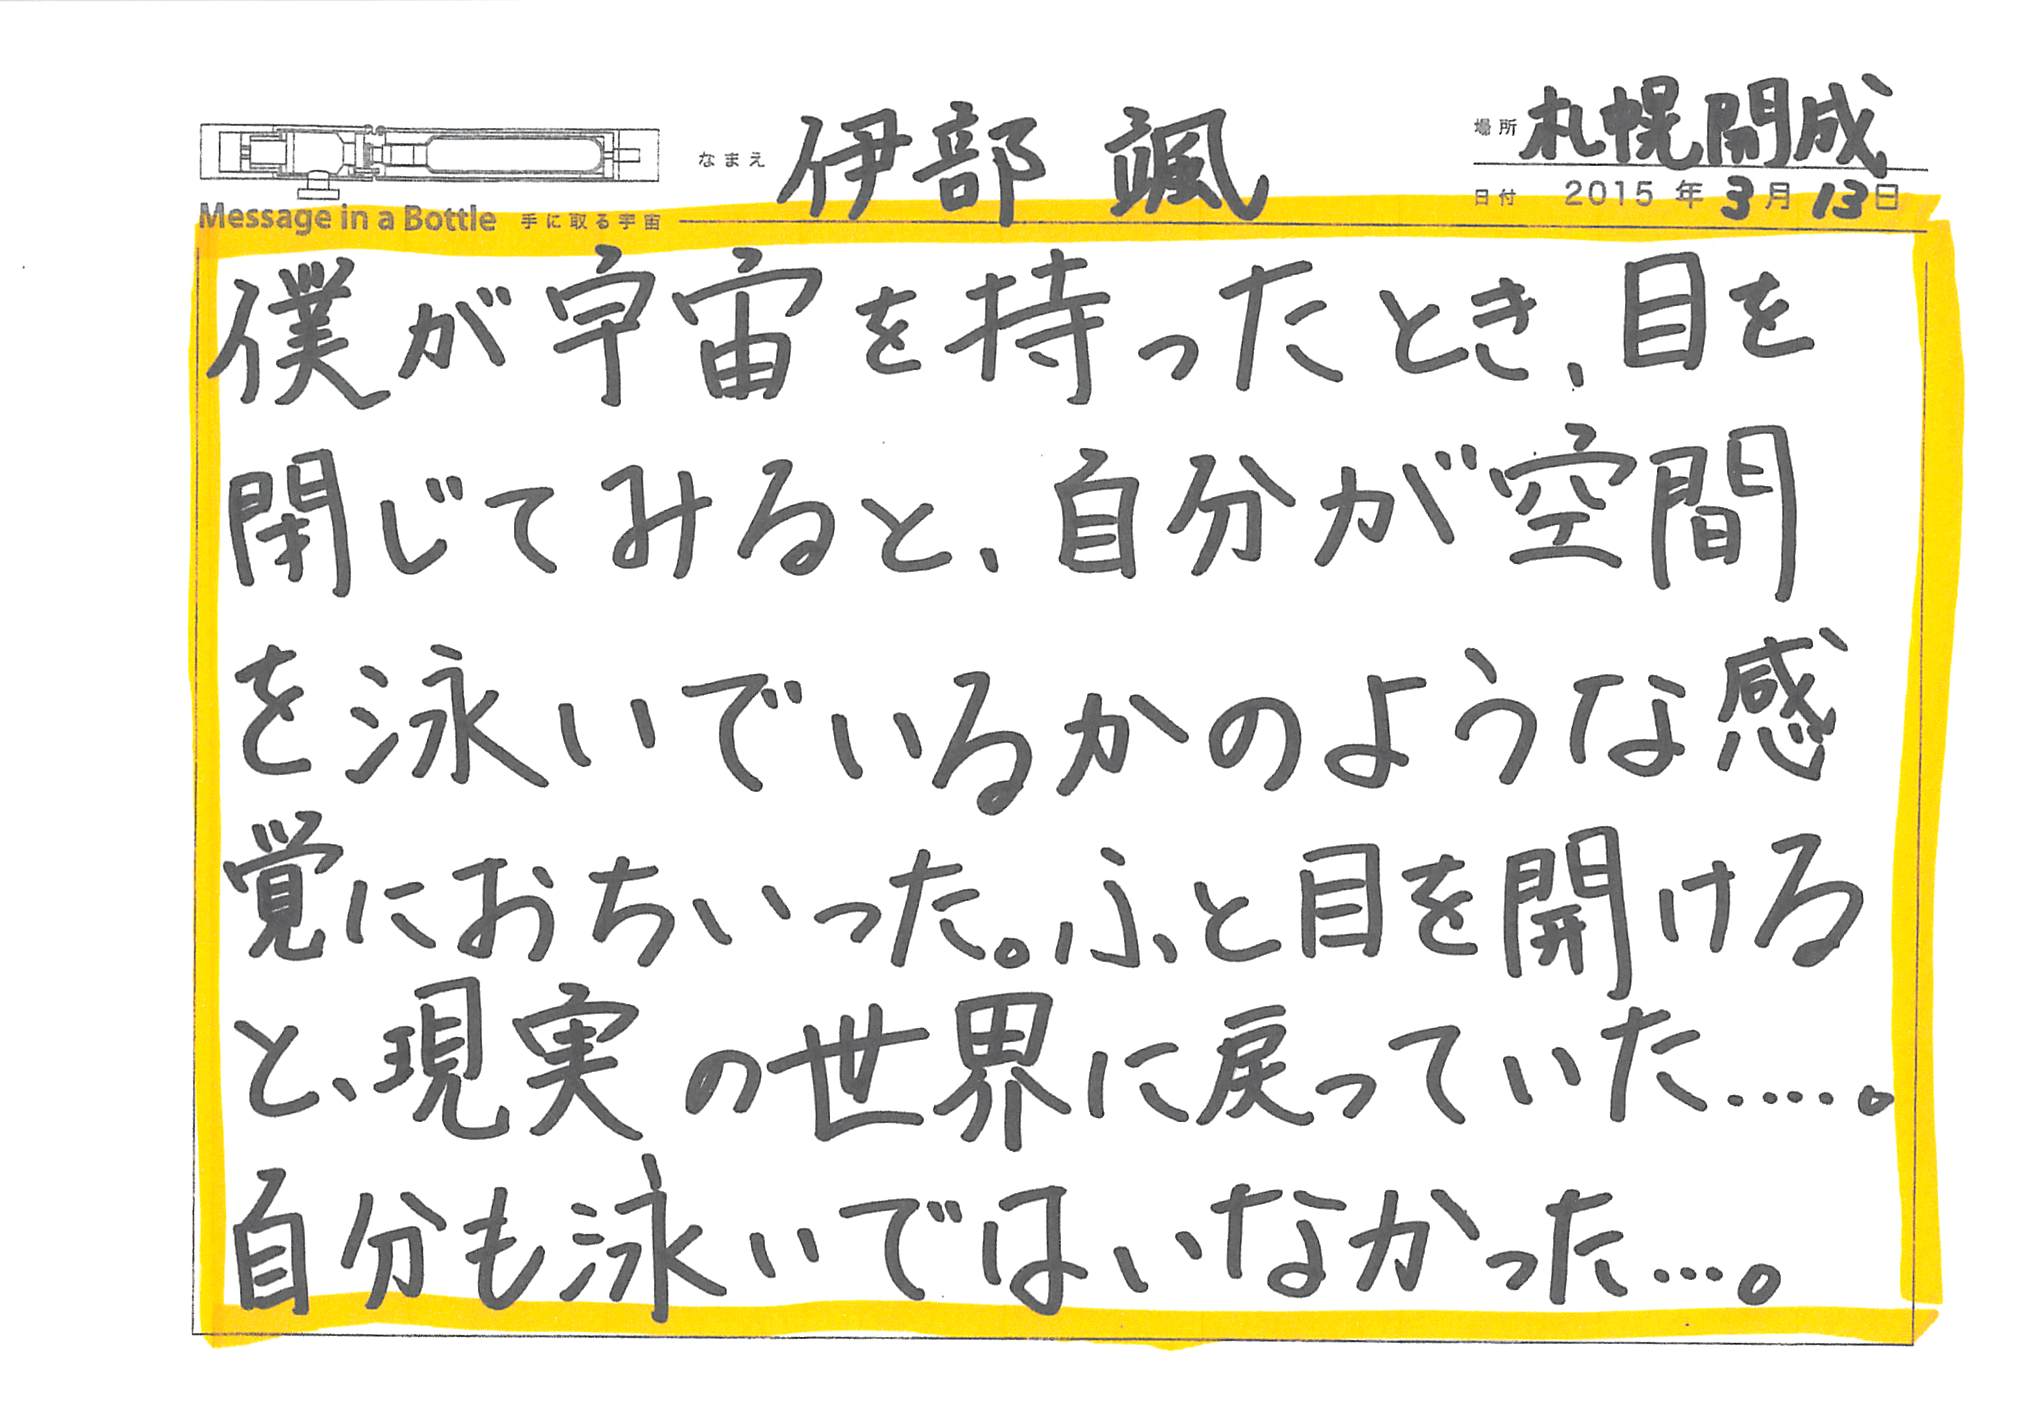 なまえ 伊部 颯
場所 札幌開成
日付 2015 年 3 月 13 日
Message in a Bottle 手に取る宇宙
僕が宇宙を持ったとき、目を
閉じてみると、自分が空間
を泳いでいるかのような感
覚におちいった。ふと目を開ける
と、現実の世界に戻っていた.....。
自分も泳いではいなかった...。